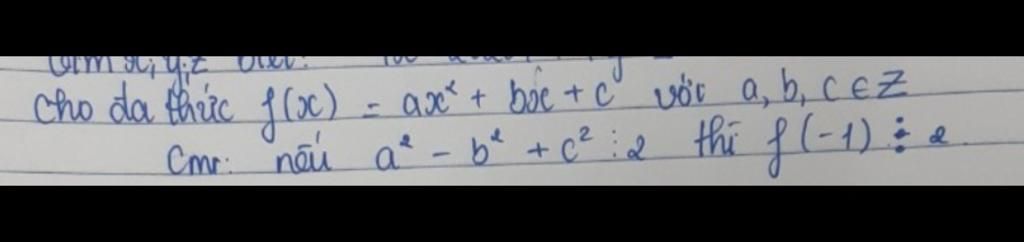 cho đa thức f(x) = ax² + bx + c với a, b, c ∈ Z
Cmr: nếu a² - b² + c² ⋮ 2 thì f(-1) ⋮ 2